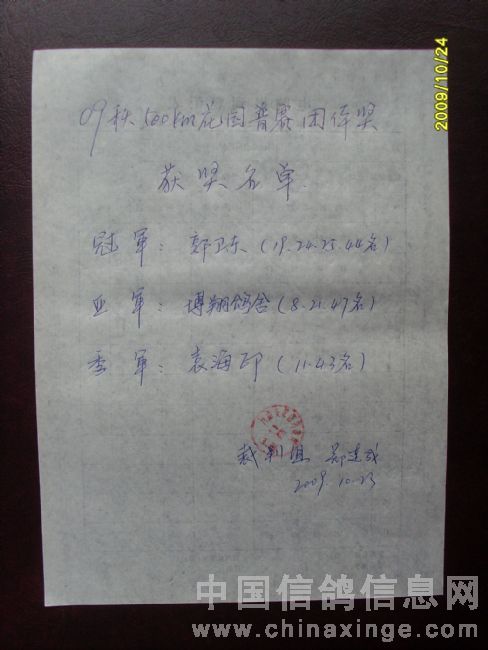 2009/10/24
09秋500km花园普赛团体奖
获奖名单
冠军：郭卫东（19.24.25.44名）
亚军：博翔鸽舍（8.21.47名）
季军：袁海印（11.43名）
裁判组
2009.10.23
中国信鸽信息网
www.chinaxinge.com